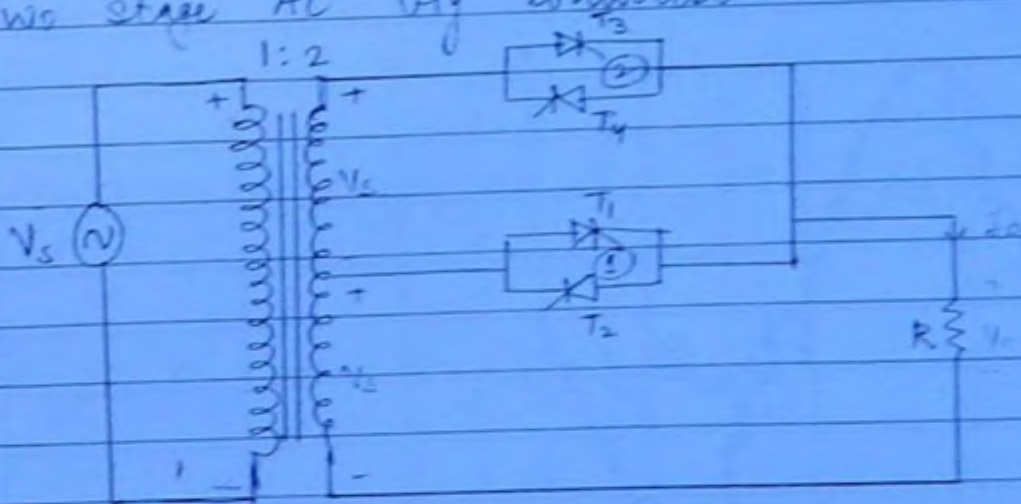 Stage AC
1:2
T3
+ + 2
T4
Vs
Vs T1
+ 1
T2
R
Vs
- -